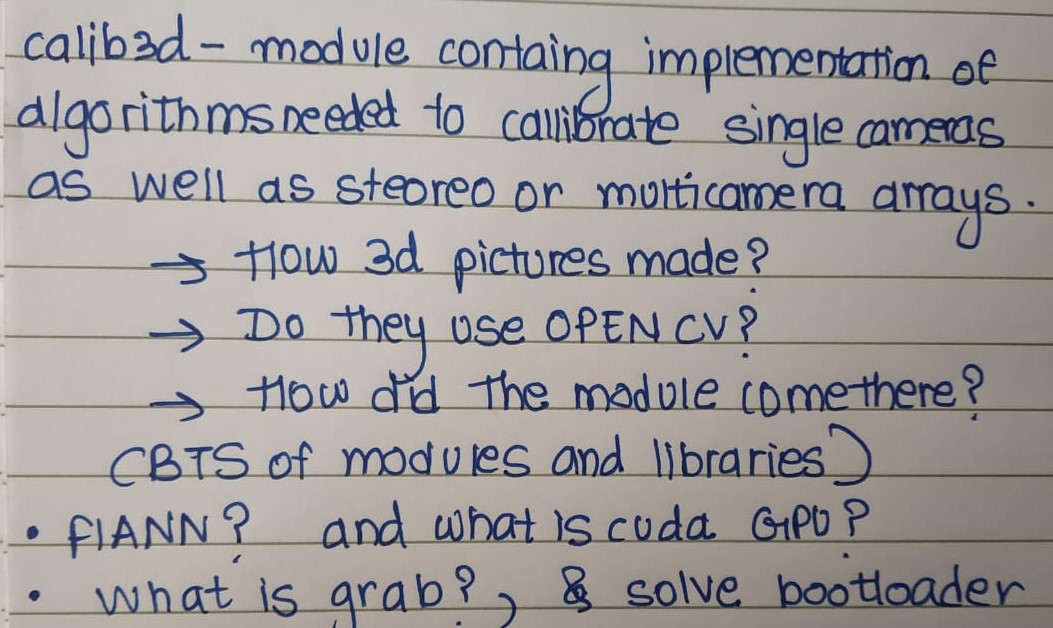 calib3d - module containg implementation of
algorithms needed to callibrate single cameras
as well as steoreo or multicamera arrays.
→ How 3d pictures made?
→ Do they use OPENCV?
→ How did the module come there?
(BTS of modules and libraries)
• FlANN? and what is cuda GPU?
• what is grab?, & solve bootloader